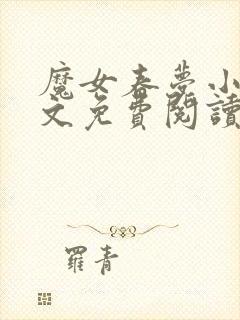 魔女春夢小
文免費閱讀
羅青